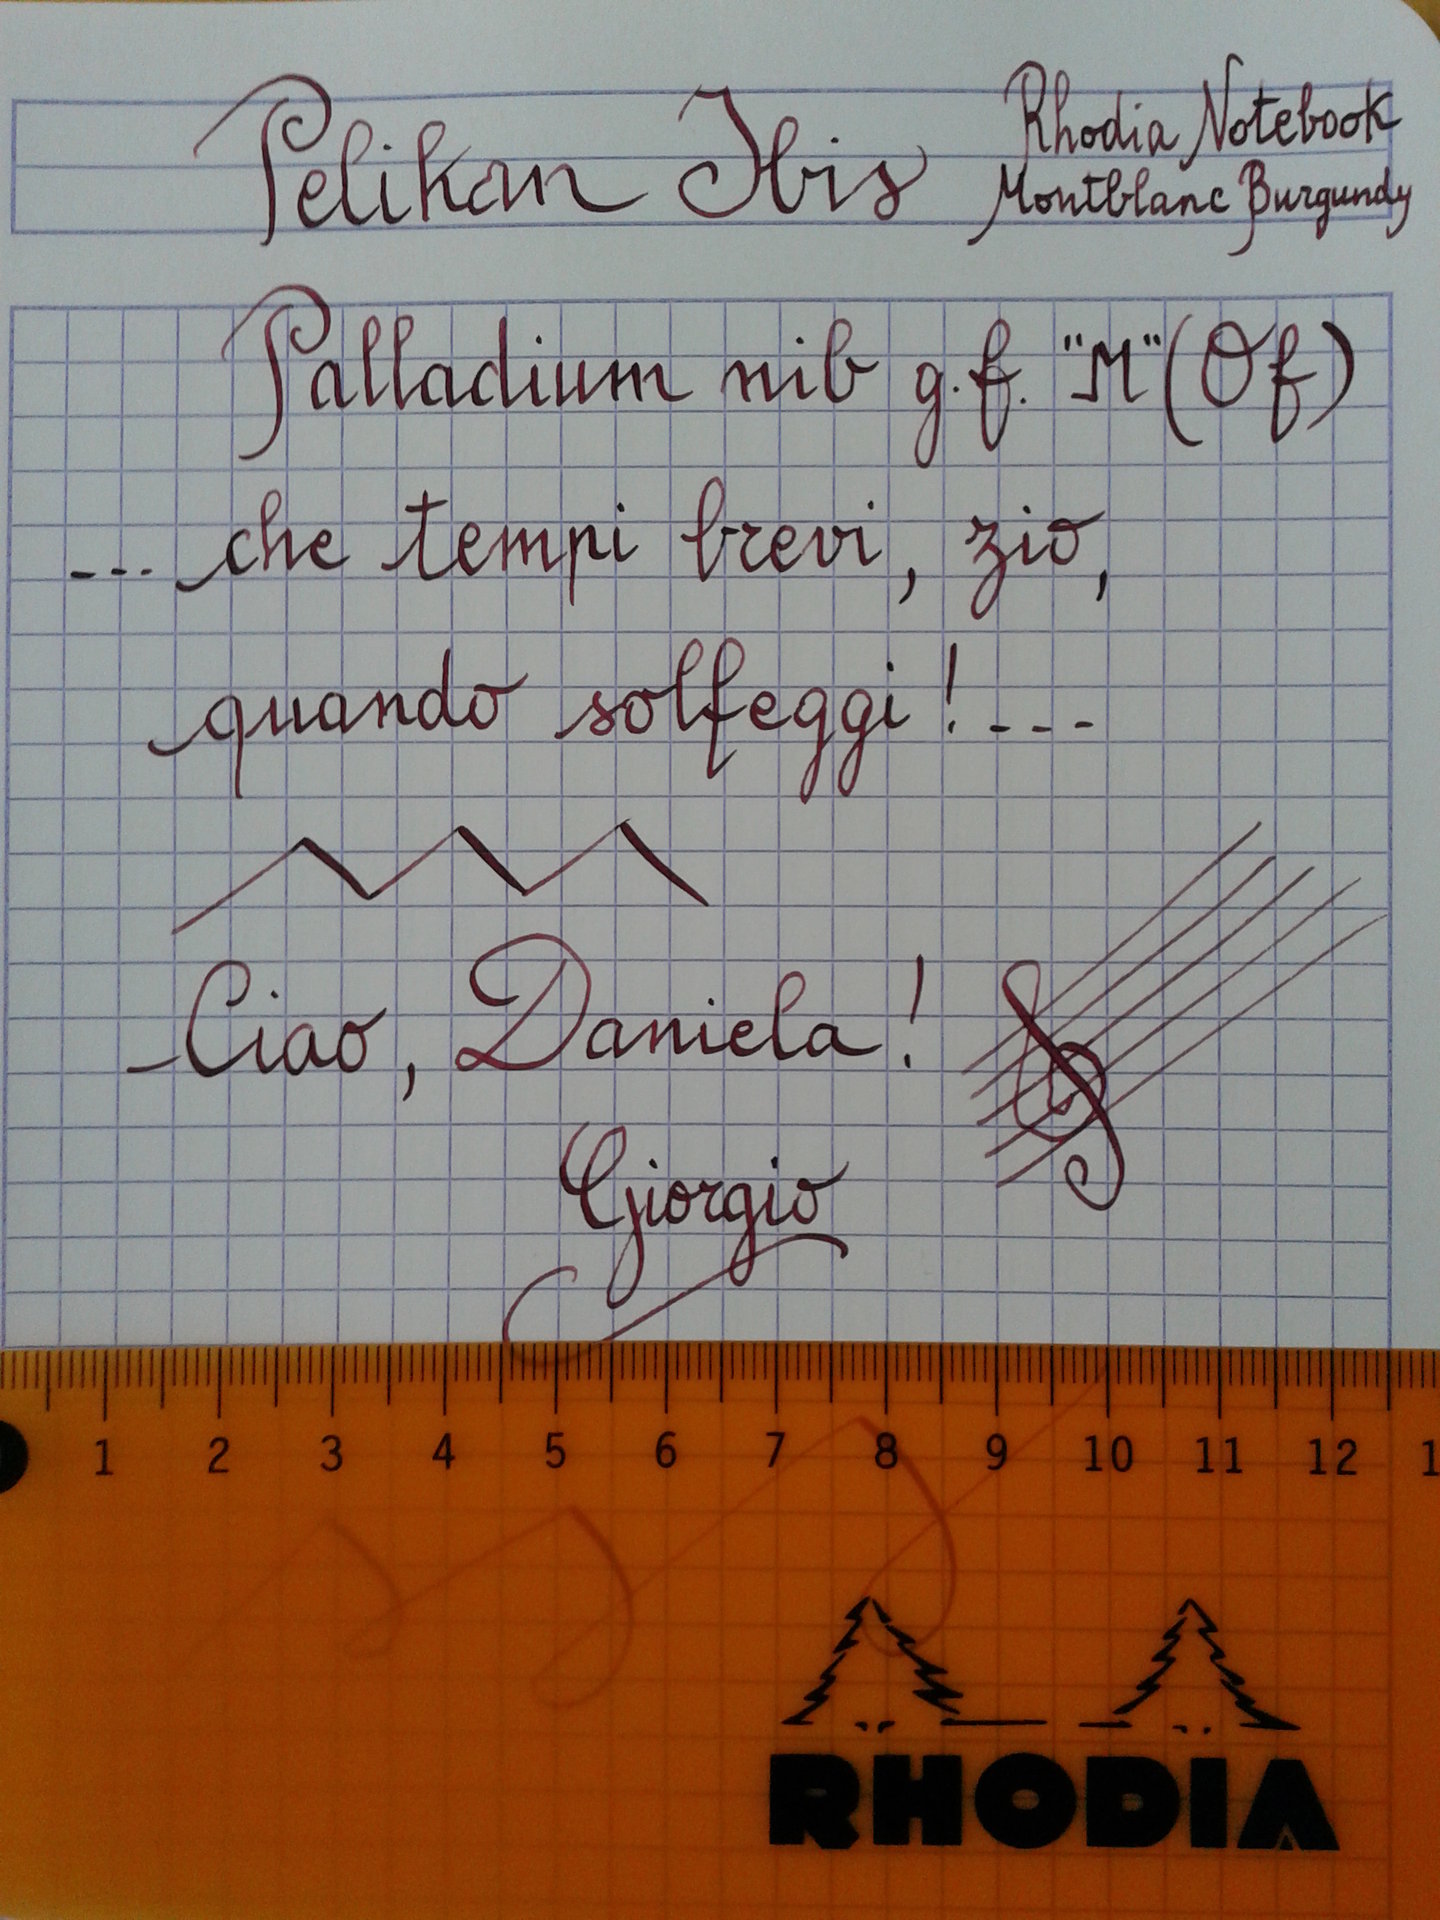 Pelikan Ibis
Rhodia Notebook
Montblanc Burgundy
Palladium nib g.f. "M" (Of)
--- che tempi brevi, zio,
quando solfeggi! ---
Ciao, Daniela!
Giorgio
1 2 3 4 5 6 7 8 9 10 11 12 1
RHODIA